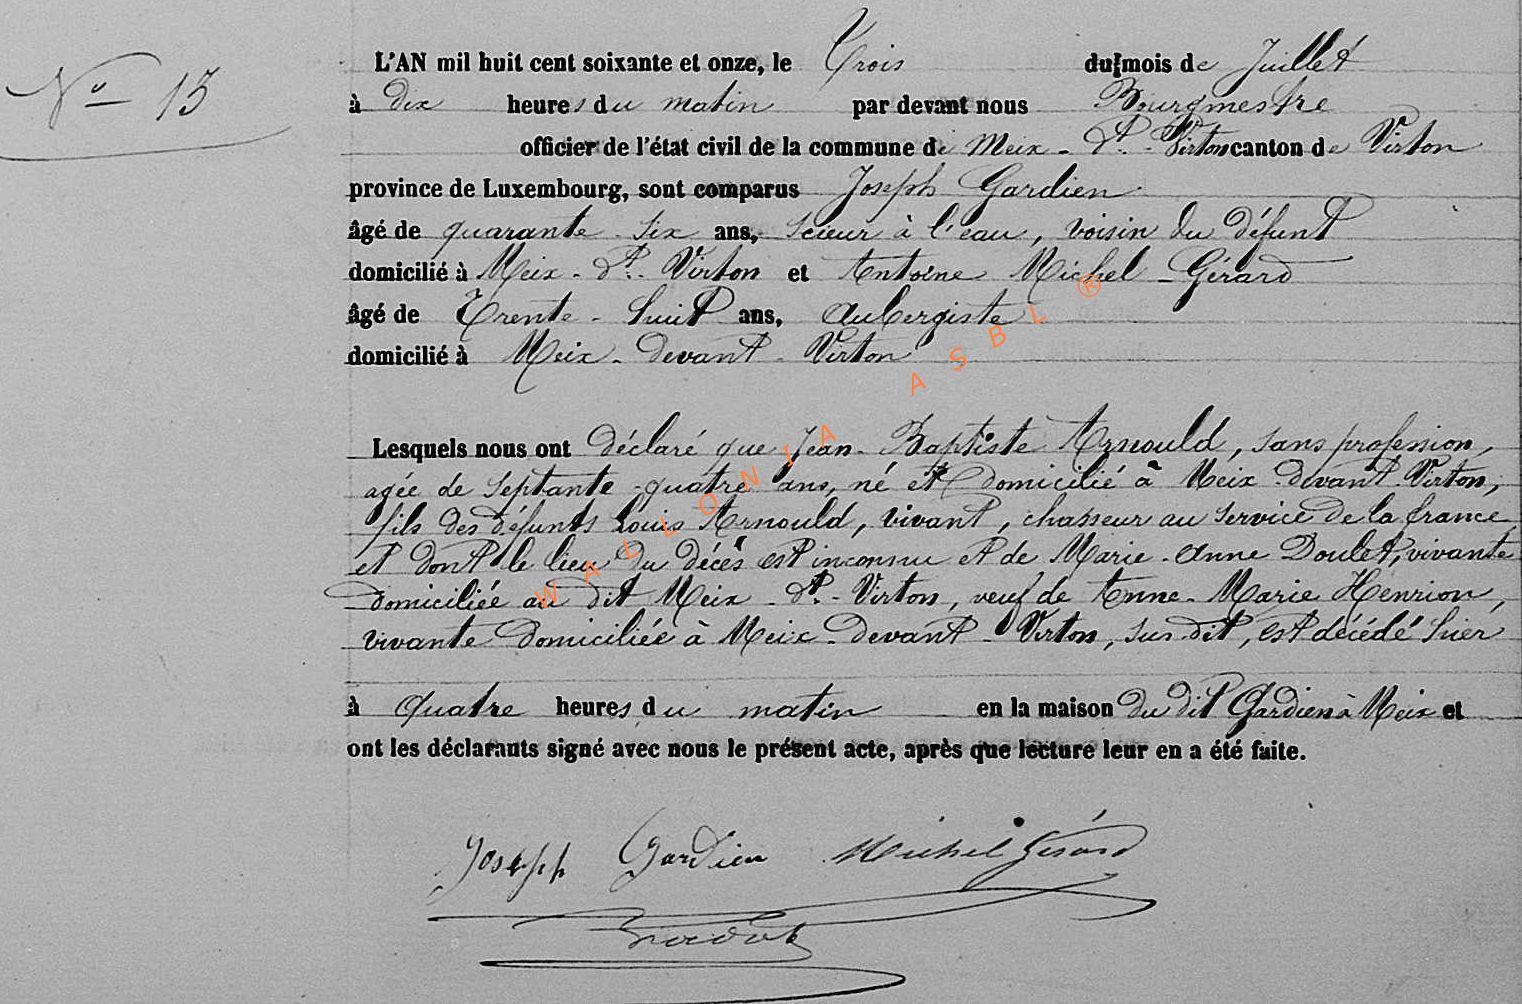 N° 13
L'AN mil huit cent soixante et onze, le Trois du mois de Juillet
à dix heures du matin par devant nous Bourgmestre
officier de l'état civil de la commune de Meix-dt-Virton canton de Virton
province de Luxembourg, sont comparus Joseph Gardien
âgé de quarante-six ans, scieur à l'eau, voisin du défunt
domicilié à Meix-dt-Virton et Antoine Michel-Gérard
âgé de Trente-huit ans, aubergiste
domicilié à Meix-devant-Virton
Lesquels nous ont déclaré que Jean-Baptiste Arnould, sans profession,
agée de septante-quatre ans, né et domicilié à Meix-devant-Virton,
fils des défunts Louis Arnould, vivant, chasseur au service de la france
et dont le lieu du décès est inconnu et de Marie-Anne Doulet, vivante
domiciliée au dit Meix-dt-Virton, veuf de Anne-Marie Henrion,
vivante domiciliée à Meix-devant-Virton, sus-dit, est décédé hier
à quatre heures du matin en la maison du dit Gardien à Meix et
ont les déclarants signé avec nous le présent acte, après que lecture leur en a été faite.
Joseph Gardien Michel Gérard
WALLONIA ASBL ®